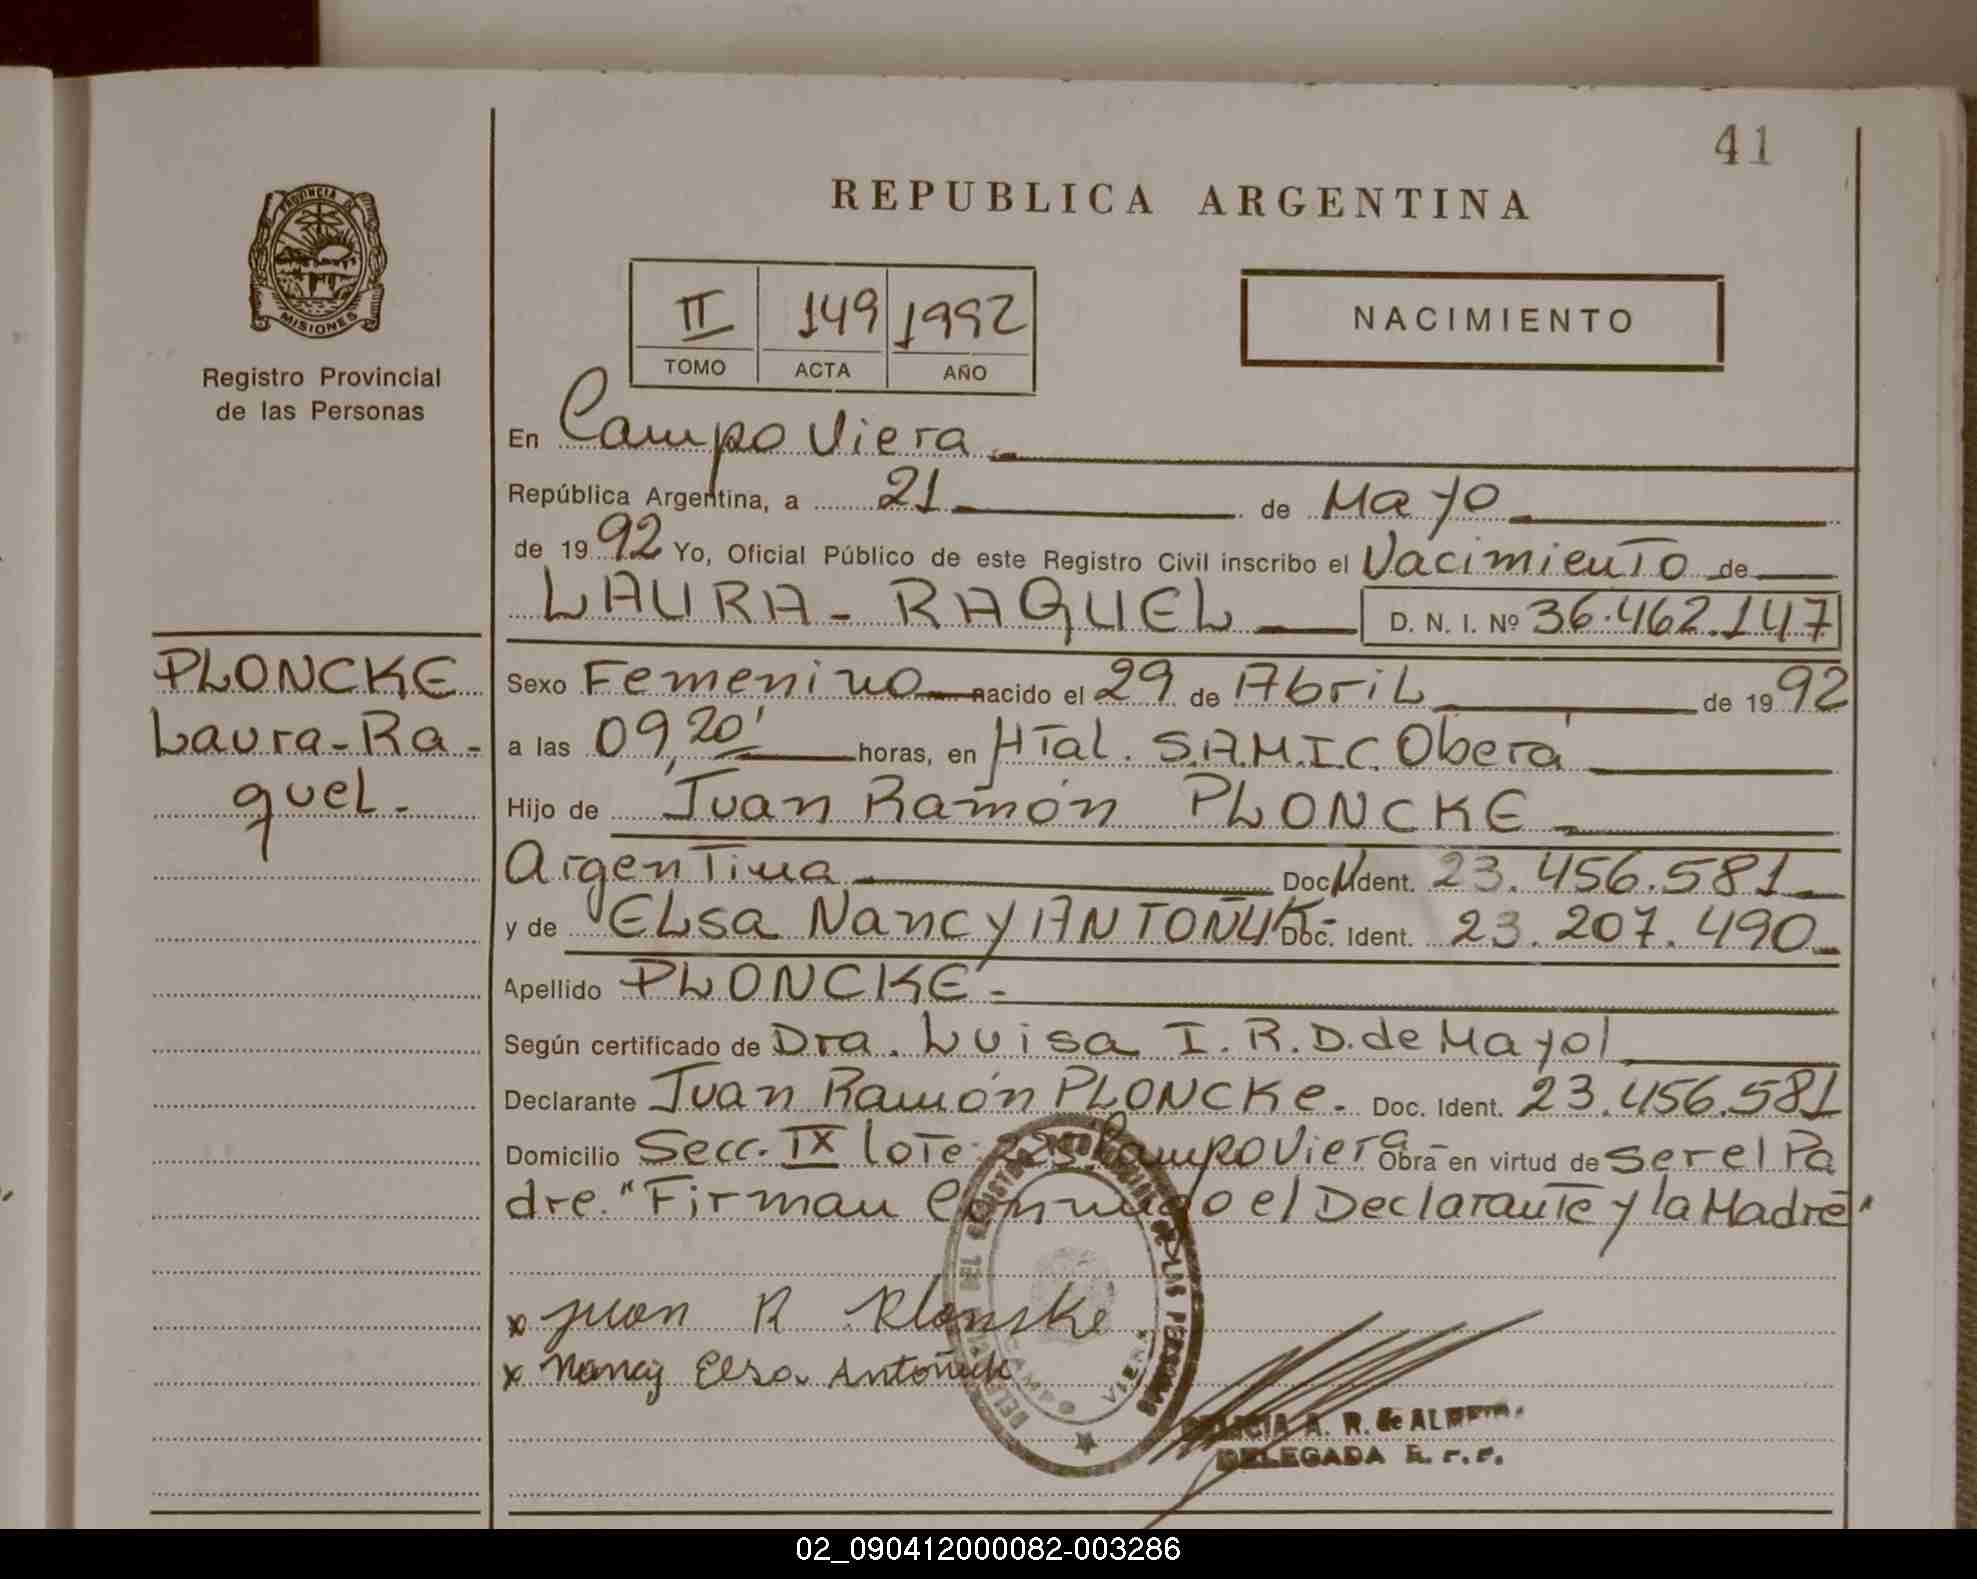 41
REPUBLICA ARGENTINA
PROVINCIA DE
MISIONES
Registro Provincial
de las Personas
II 149 1992
TOMO ACTA AÑO
NACIMIENTO
En Campo Viera
República Argentina, a 21 de Mayo
de 1992 Yo, Oficial Público de este Registro Civil inscribo el Nacimiento de
LAURA - RAQUEL D. N. I. Nº 36.462.147
PLONCKE
Laura - Ra -
quel.
Sexo Femenino nacido el 29 de Abril de 1992
a las 09,20' horas, en HTal. S.A.M.I.C. Oberá
Hijo de Juan Ramón PLONCKE
Argentina Doc. Ident. 23.456.581
y de ELsa Nancy ANTOÑUK - Doc. Ident. 23.207.490
Apellido PLONCKE -
Según certificado de Dra. Luisa I. R. D. de Mayol
Declarante Juan Ramón PLONCKe. Doc. Ident. 23.456.581
Domicilio Secc. IX lote 225 Campo Viera Obra en virtud de ser el Pa
dre. "Firman Conmigo el Declarante y la Madre"
x Juan R Plonske
x Nancy Elsa Antoñuk
CAMPO VIERA
A. R. de
DELEGADA R. P. P.
02_090412000082-003286